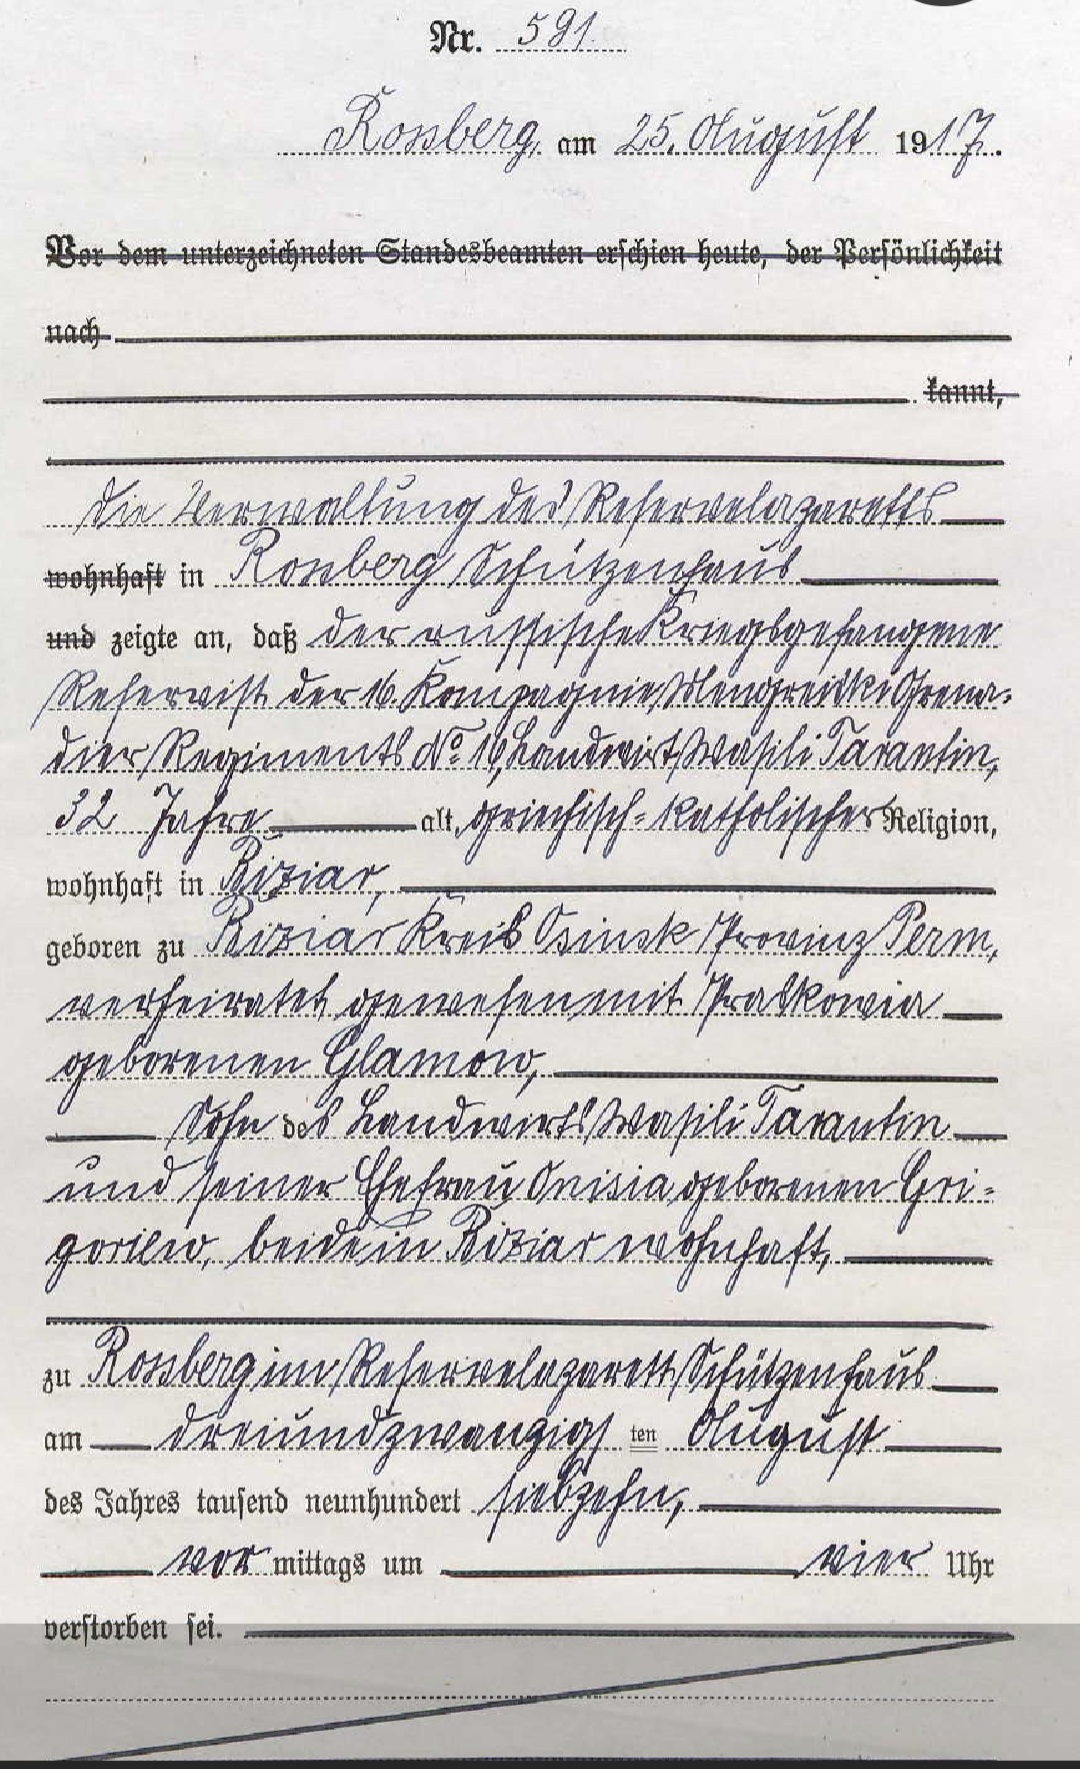 Nr. 591.
Rossberg, am 25. August 1917.
Vor dem unterzeichneten Standesbeamten erschien heute, der Persönlichkeit
nach
kannt,
die Verwaltung des Reservelazaretts
wohnhaft in Rossberg Schützenhaus
und zeigte an, daß der russische Kriegsgefangene
Reservist der 16. Kompagnie Mengreiski Grena-
dier Regiments No. 16, Landwirt Wasili Tarantin,
32 Jahre alt, griechisch-katholischer Religion,
wohnhaft in Riziar,
geboren zu Riziar Kreis Osinsk Provinz Perm,
verheiratet gewesen mit Praskowia
geborenen Glamow,
Sohn des Landwirts Wasili Tarantin
und seiner Ehefrau Onisia geborenen Gri-
goriew, beide in Riziar wohnhaft,
zu Rossberg im Reservelazarett Schützenhaus
am dreiundzwanzigsten August
des Jahres tausend neunhundert siebzehn,
vor mittags um vier Uhr
verstorben sei.